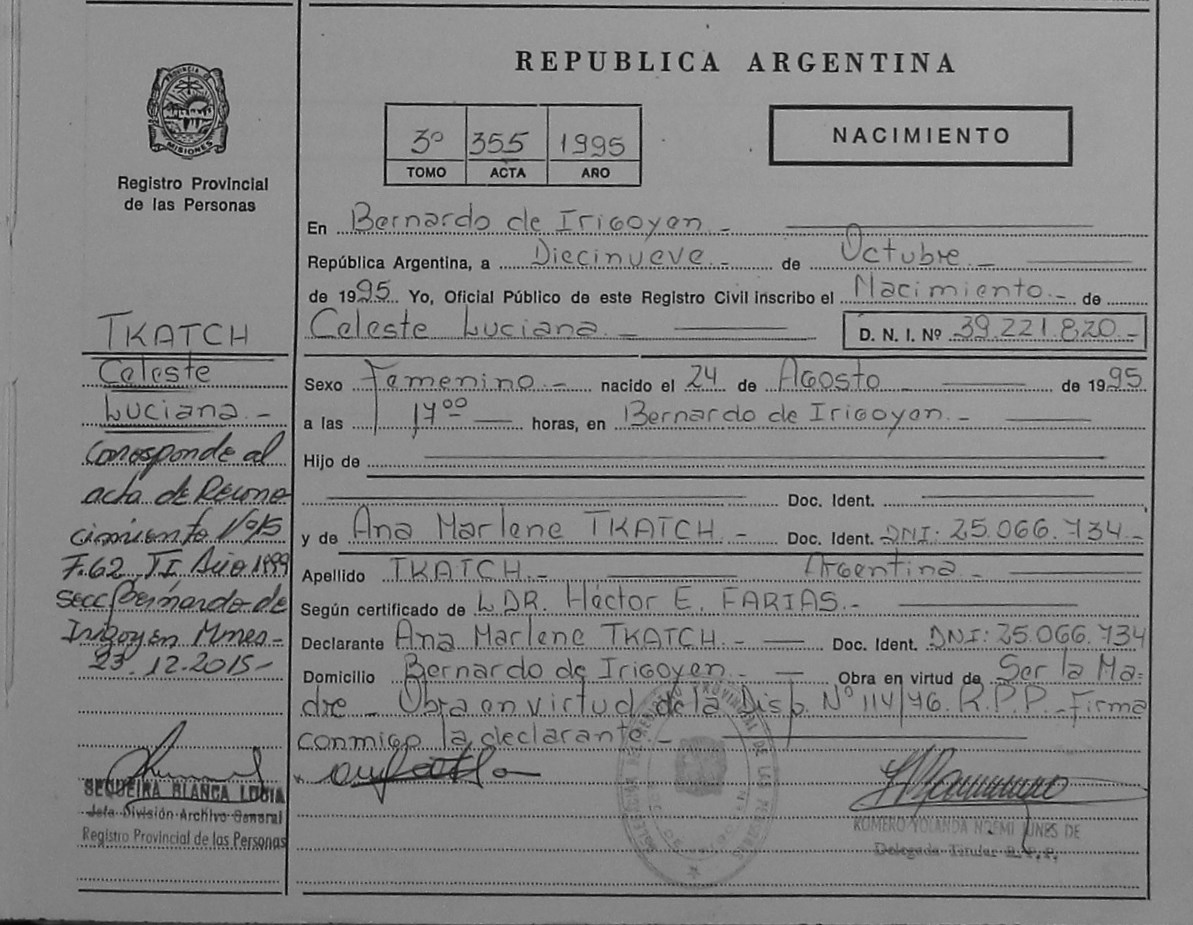 REPUBLICA ARGENTINA
PROVINCIA DE
MISIONES
Registro Provincial
de las Personas
3º 355 1995
TOMO ACTA AÑO
NACIMIENTO
En Bernardo de Irigoyen.-
República Argentina, a Diecinueve.- de Octubre.-
de 1995. Yo, Oficial Público de este Registro Civil inscribo el Nacimiento.- de
Celeste Luciana.- D. N. I. Nº 39.221.820.-
Sexo Femenino.- nacido el 24 de Agosto de 1995
a las 17⁰⁰ horas, en Bernardo de Irigoyen.-
Hijo de
Doc. Ident.
y de Ana Marlene TKATCH.- Doc. Ident. DNI: 25.066.734.-
Apellido TKATCH.- Argentina.-
Según certificado de LDR. Héctor E. FARIAS.-
Declarante Ana Marlene TKATCH.- Doc. Ident. DNI: 25.066.734
Domicilio Bernardo de Irigoyen.- Obra en virtud de Ser la Ma-
dre - Obra en virtud de la Disp. Nº 114/76. R.P.P.- Firma
conmigo la declarante.-
ROMERO YOLANDA NOEMI JUNES DE
Delegada Titular R.P.P.
TKATCH
Celeste
Luciana.-
Corresponde al
acta de Recono
cimiento Nº15
F.62 TI Año 1999
secc/Bernardo de
Irigoyen Mnes=
23.12.2015-
SEQUEIRA BLANCA LUCIA
Jefa División Archivo General
Registro Provincial de las Personas